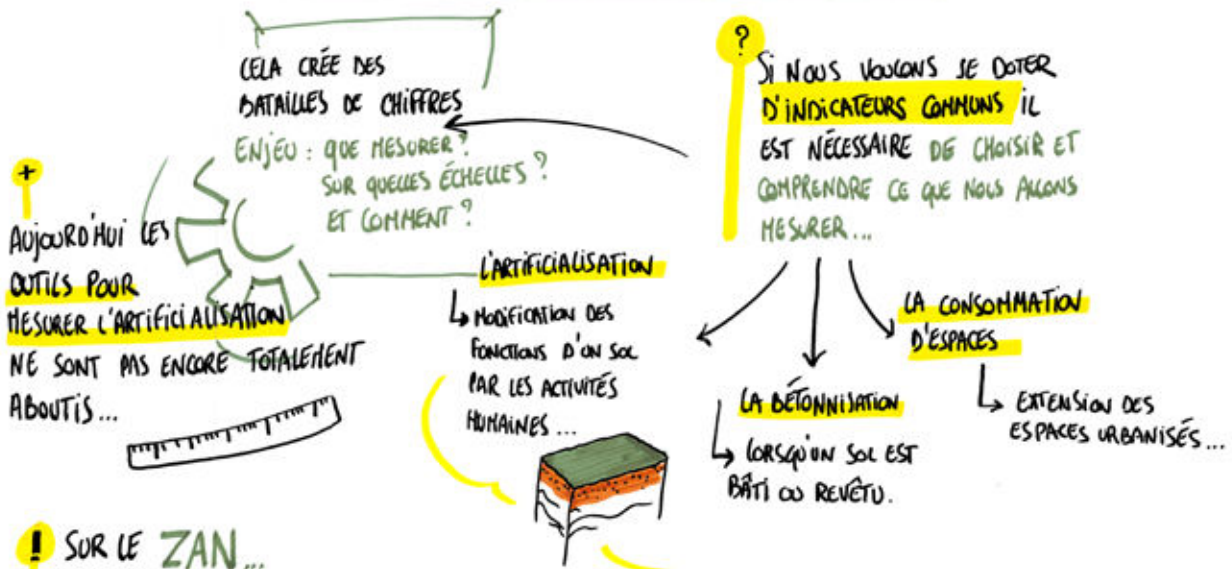 CELA CRÉE DES
BATAILLES DE CHIFFRES
ENJEU : QUE MESURER ?
SUR QUELLES ÉCHELLES ?
ET COMMENT ?
?
SI NOUS VOULONS SE DOTER
D'INDICATEURS COMMUNS IL
EST NÉCESSAIRE DE CHOISIR ET
COMPRENDRE CE QUE NOUS ALLONS
MESURER...
+
AUJOURD'HUI LES
OUTILS POUR
MESURER L'ARTIFICIALISATION
NE SONT PAS ENCORE TOTALEMENT
ABOUTIS...
L'ARTIFICIALISATION
MODIFICATION DES
FONCTIONS D'UN SOL
PAR LES ACTIVITÉS
HUMAINES...
LA BÉTONNISATION
LORSQU'UN SOL EST
BÂTI OU REVÊTU.
LA CONSOMMATION
D'ESPACES
EXTENSION DES
ESPACES URBANISÉS...
! SUR LE ZAN...